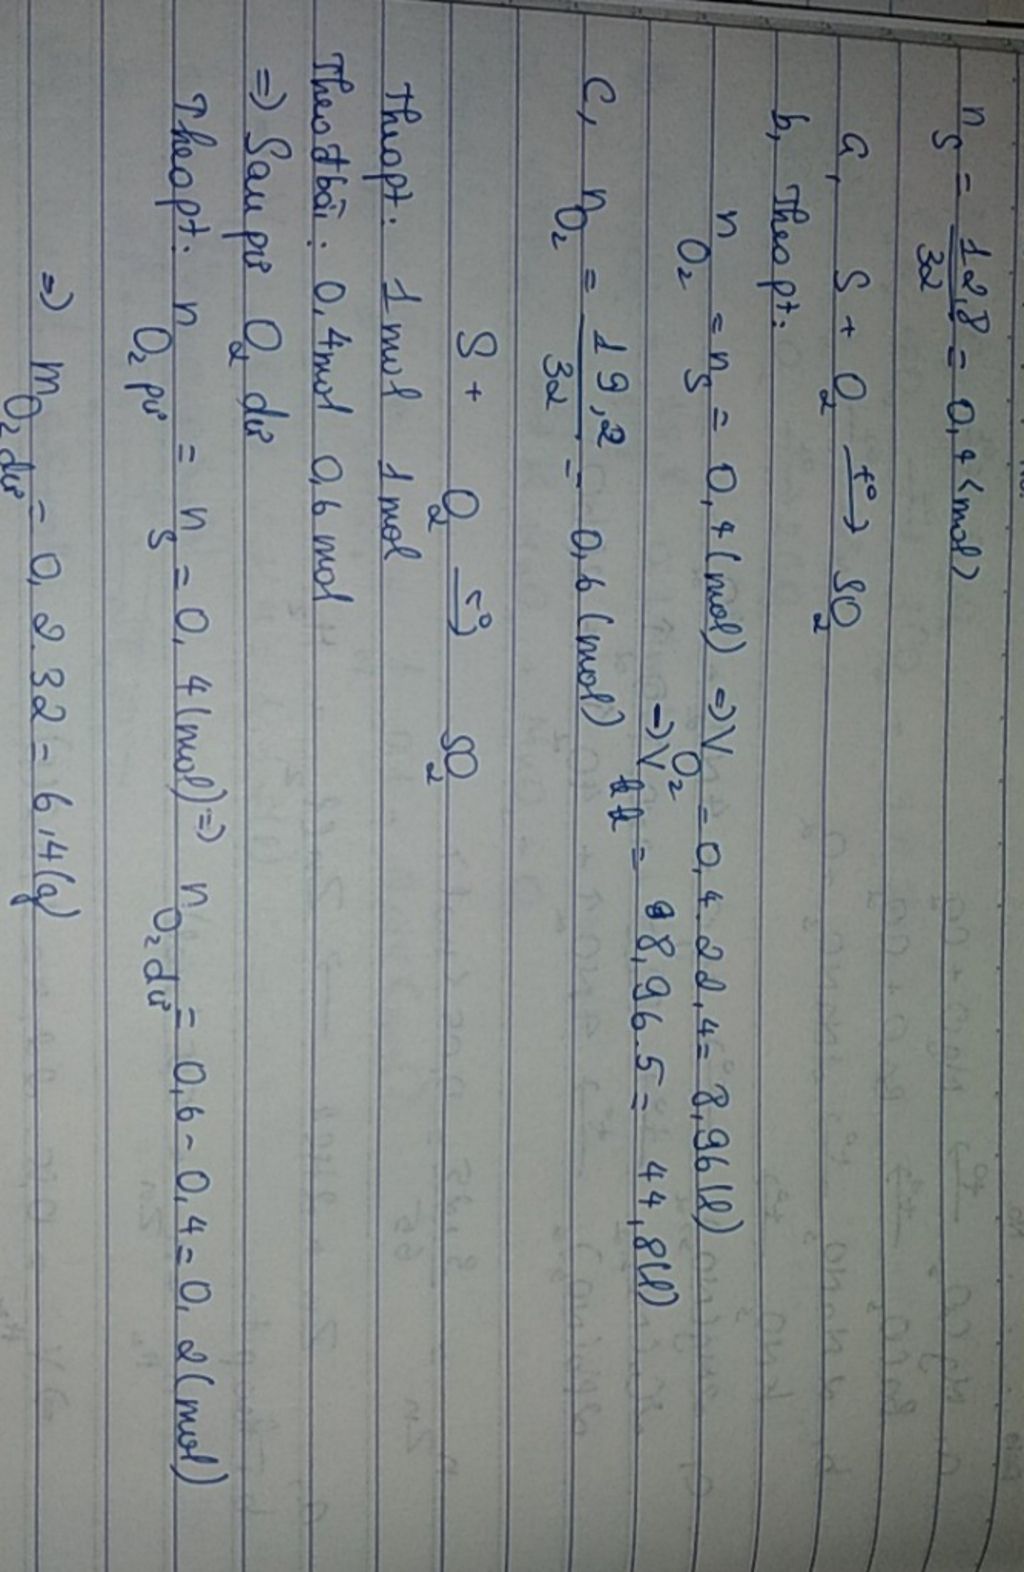 n_S = 12,8/32 = 0,4 (mol)
a, S + O2 —t°→ SO2
b, Theo pt:
n_O2 = n_S = 0,4 (mol) => V_O2 = 0,4.22,4 = 8,96 (l)
=> V_kk = 8,96.5 = 44,8 (l)
C, n_O2 = 19,2/32 = 0,6 (mol)
S + O2 —t°→ SO2
Theo pt: 1 mol 1 mol
Theo đbài: 0,4 mol 0,6 mol
=> Sau pứ O2 dư
Theo pt: n_O2 pứ = n_S = 0,4 (mol) => n_O2 dư = 0,6 - 0,4 = 0,2 (mol)
=> m_O2 dư = 0,2.32 = 6,4 (g)